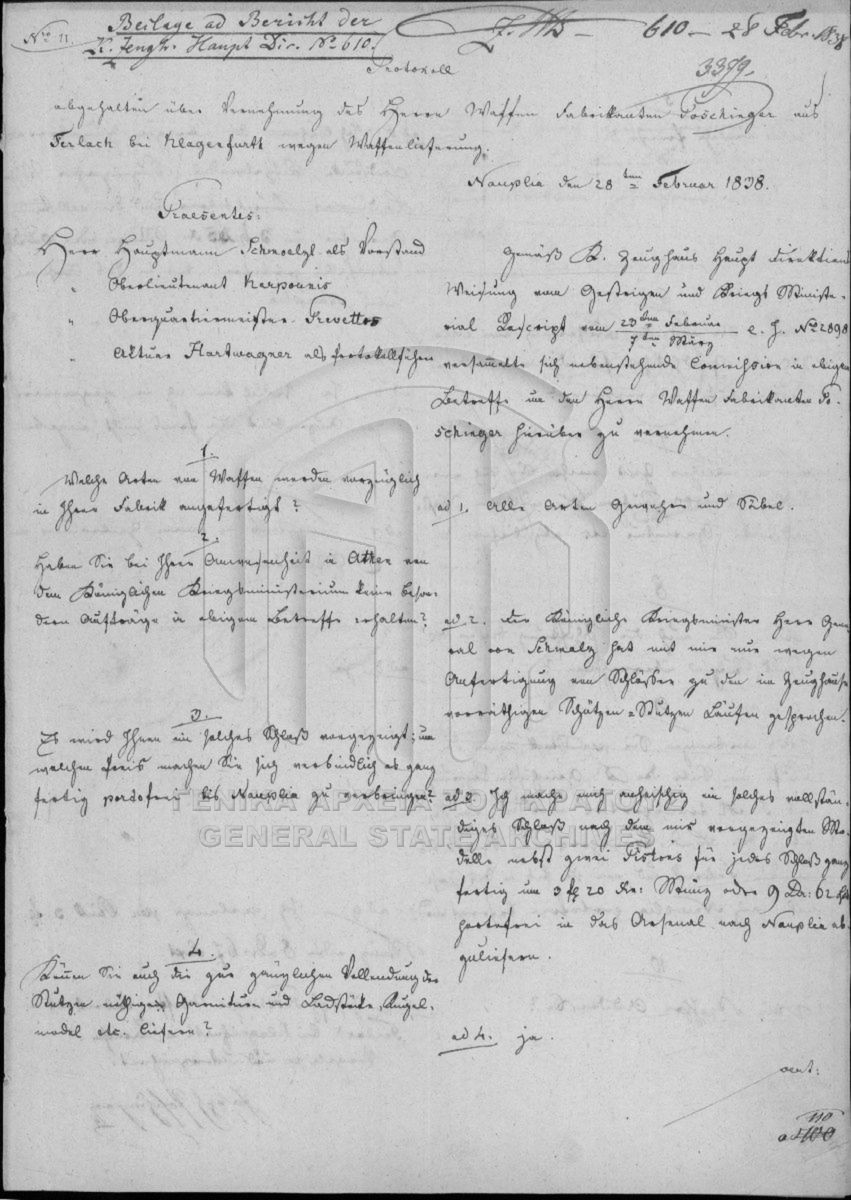 No 11.
Beilage ad Bericht der
K. Zeugh. Haupt Dir. No 610.
610 - 28 Febr. 1838
3379.
Protokoll
abgehalten über Vernehmung des Herrn Waffen Fabrikanten Poschinger aus
Ferlach bei Klagenfurth wegen Waffenlieferung.
Nauplia den 28ten Februar 1838.
Praesentes:
Herr Hauptmann Schmoelzl als Vorstand
" Oberlieutenant Karpounis
" Oberquartiermeister Prevettos
" Aktuar Hartwagner als Protokollführer
Gemäß K. Zeughaus Haupt Direktions
Weisung vom Gestrigen und Kriegs Ministe-
rial Rescript vom 23ten Februar / 7ten März e. J. No 2898
versammelte sich nebenstehende Commission in obigem
Betreffe um den Herrn Waffen Fabrikanten Po-
schinger hierüber zu vernehmen.
1.
Welche Arten von Waffen werden vorzüglich
in Ihrer Fabrik angefertigt?
ad 1. Alle Arten Gewehre und Säbel.
2.
Haben Sie bei Ihrer Anwesenheit in Athen von
dem Königlichen Kriegsministerium keine beson-
dern Aufträge in obigem Betreffe erhalten?
ad 2. Der Königliche Kriegsminister Herr Gene-
ral von Schmalz hat mit mir nur wegen
Anfertigung von Schlösser zu den im Zeughause
vorräthigen Schützen-Stutzen Läufen gesprochen.
3.
Es wird Ihnen ein solches Schloß vorgezeigt; um
welchen Preis machen Sie sich verbindlich es ganz
fertig portofrei bis Nauplia zu verbringen?
ad 3. Ich mache mich anheischig ein solches vollstän-
diges Schloß nach dem mir vorgezeigten Mo-
delle nebst zwei Pistons für jedes Schloß ganz
fertig um 3 fl 20 Kr: Münz oder 9 Dr: 62 Lpt
portofrei in das Arsenal nach Nauplia ab-
zuliefern.
4.
Können Sie auch die zur gänzlichen Vollendung der
Stutzen nöthigen Garnituren und Ladstöcke, Kugel-
model etc. liefern?
ad 4. ja.
110
ΓΕΝΙΚΑ ΑΡΧΕΙΑ ΤΟΥ ΚΡΑΤΟΥΣ
GENERAL STATE ARCHIVES